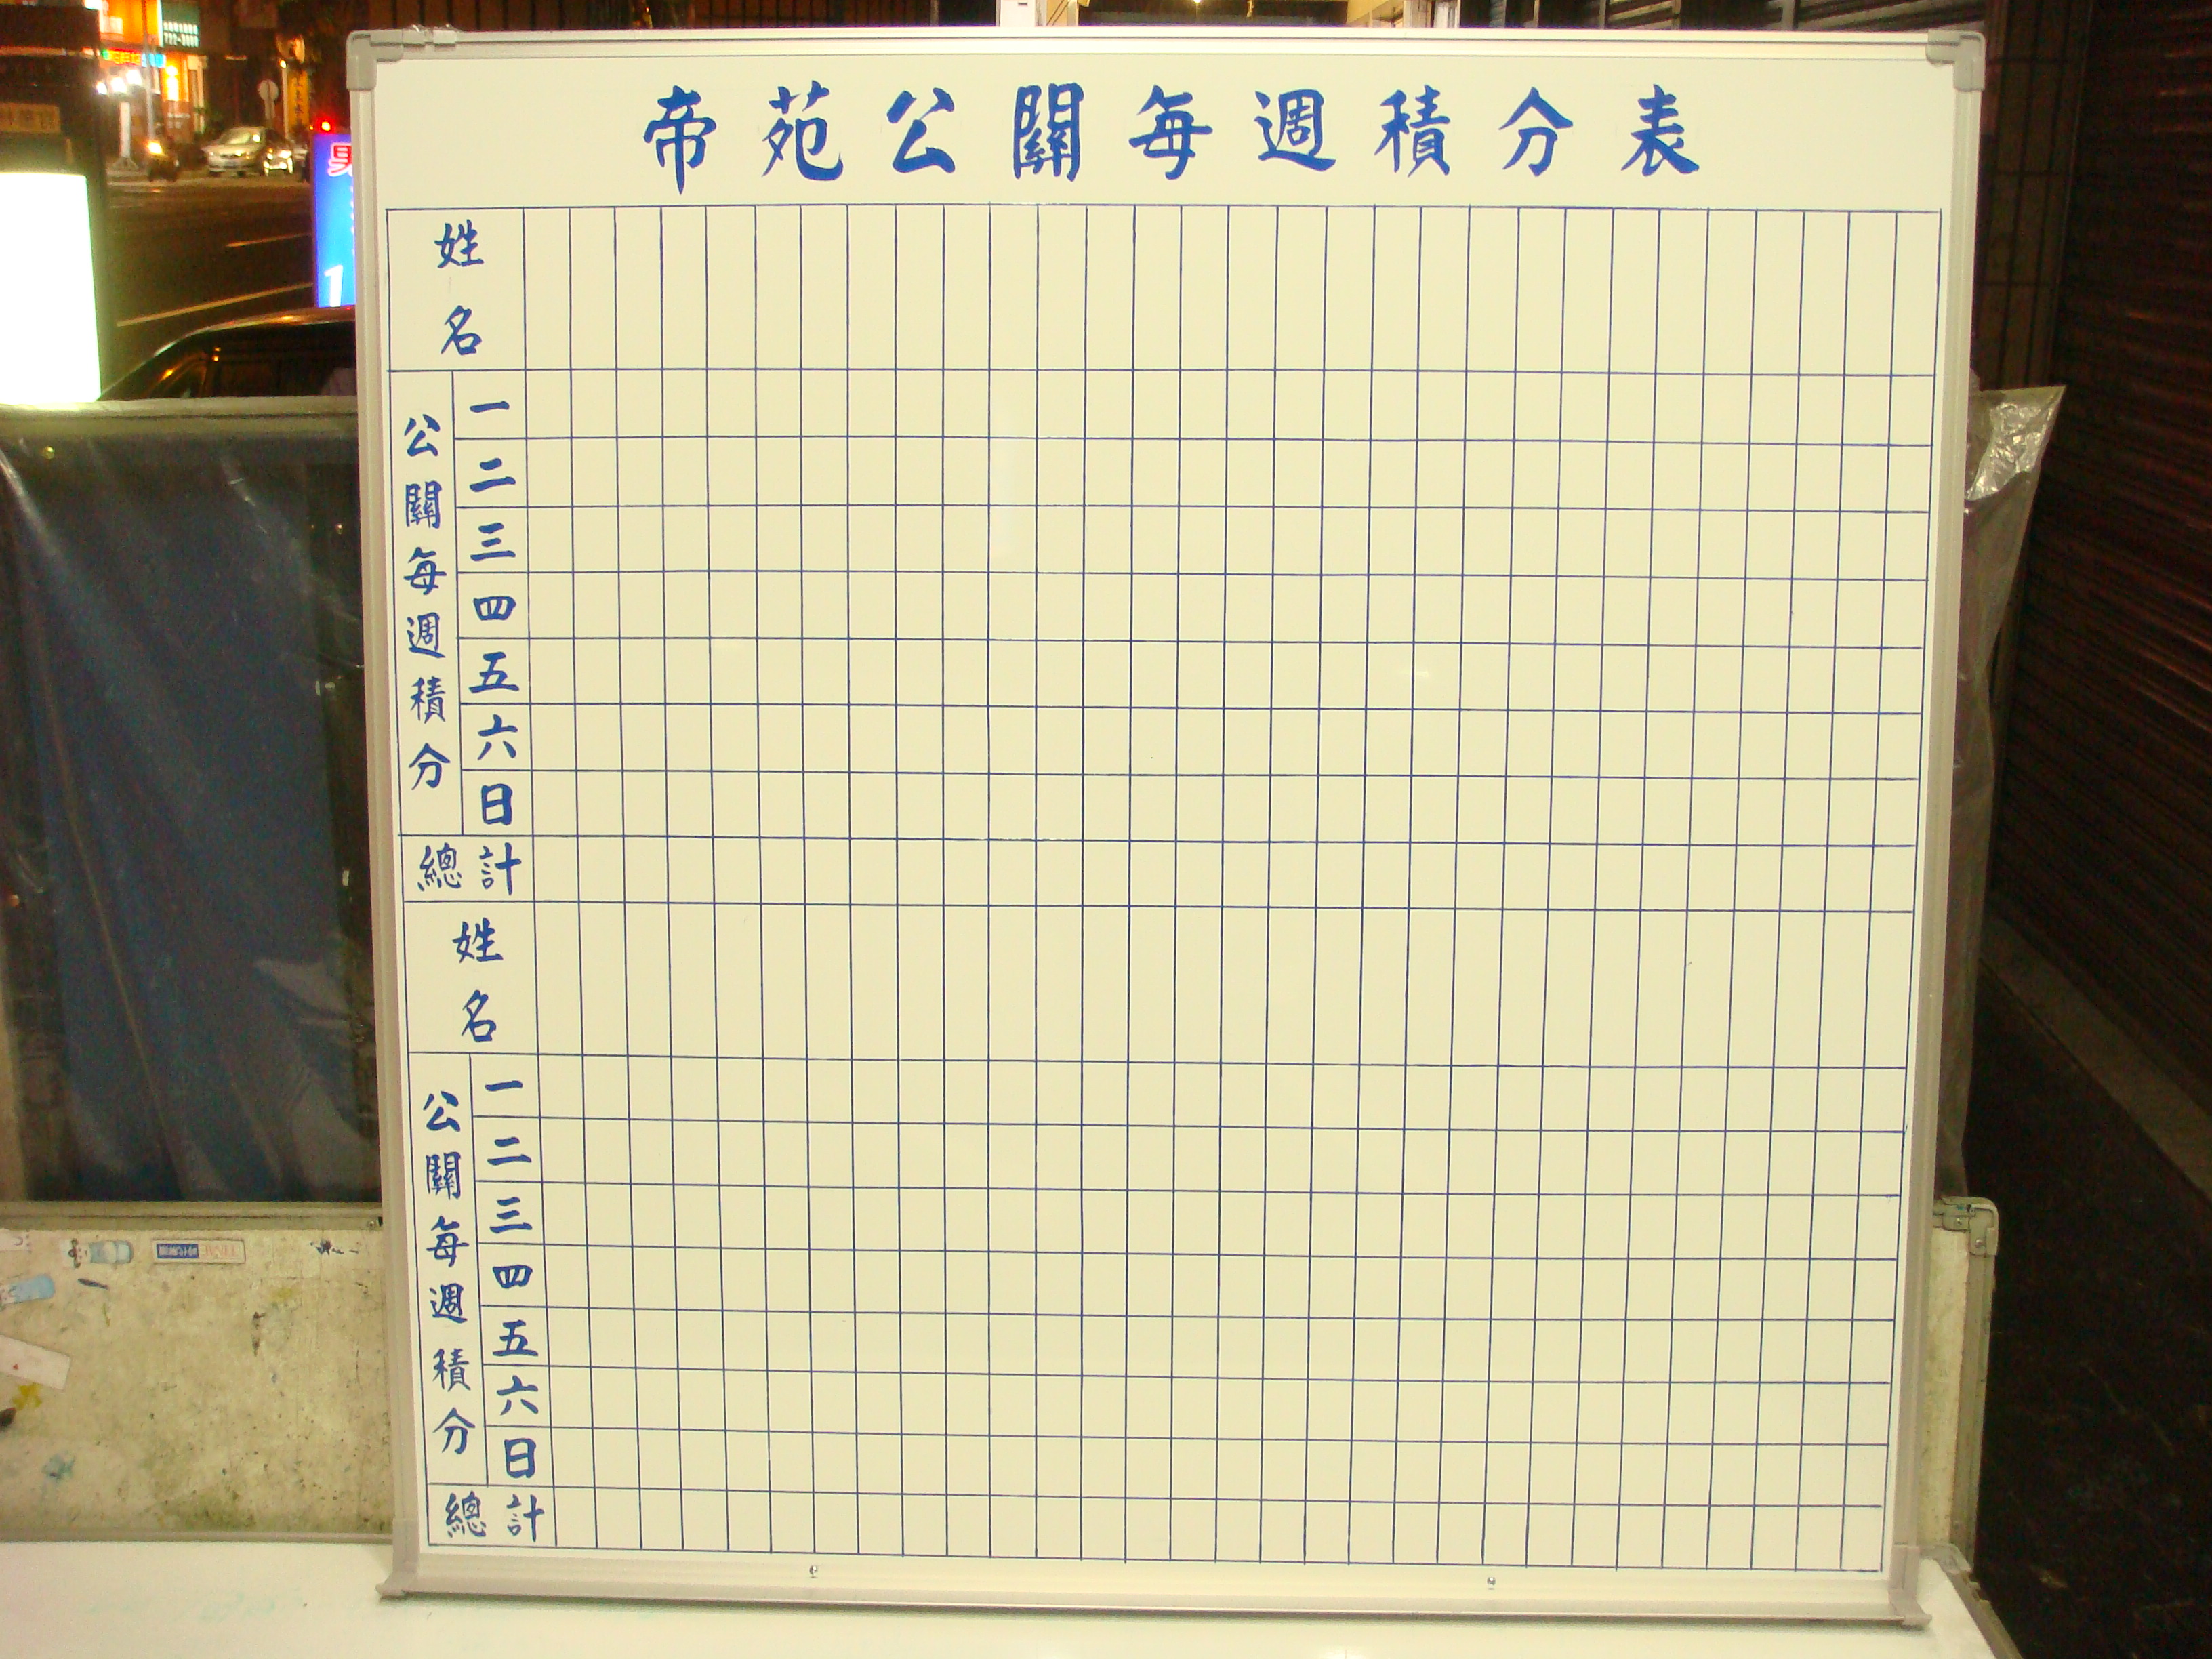 帝苑公關每週積分表
姓名
公關每週積分
一
二
三
四
五
六
日
總計
姓名
公關每週積分
一
二
三
四
五
六
日
總計